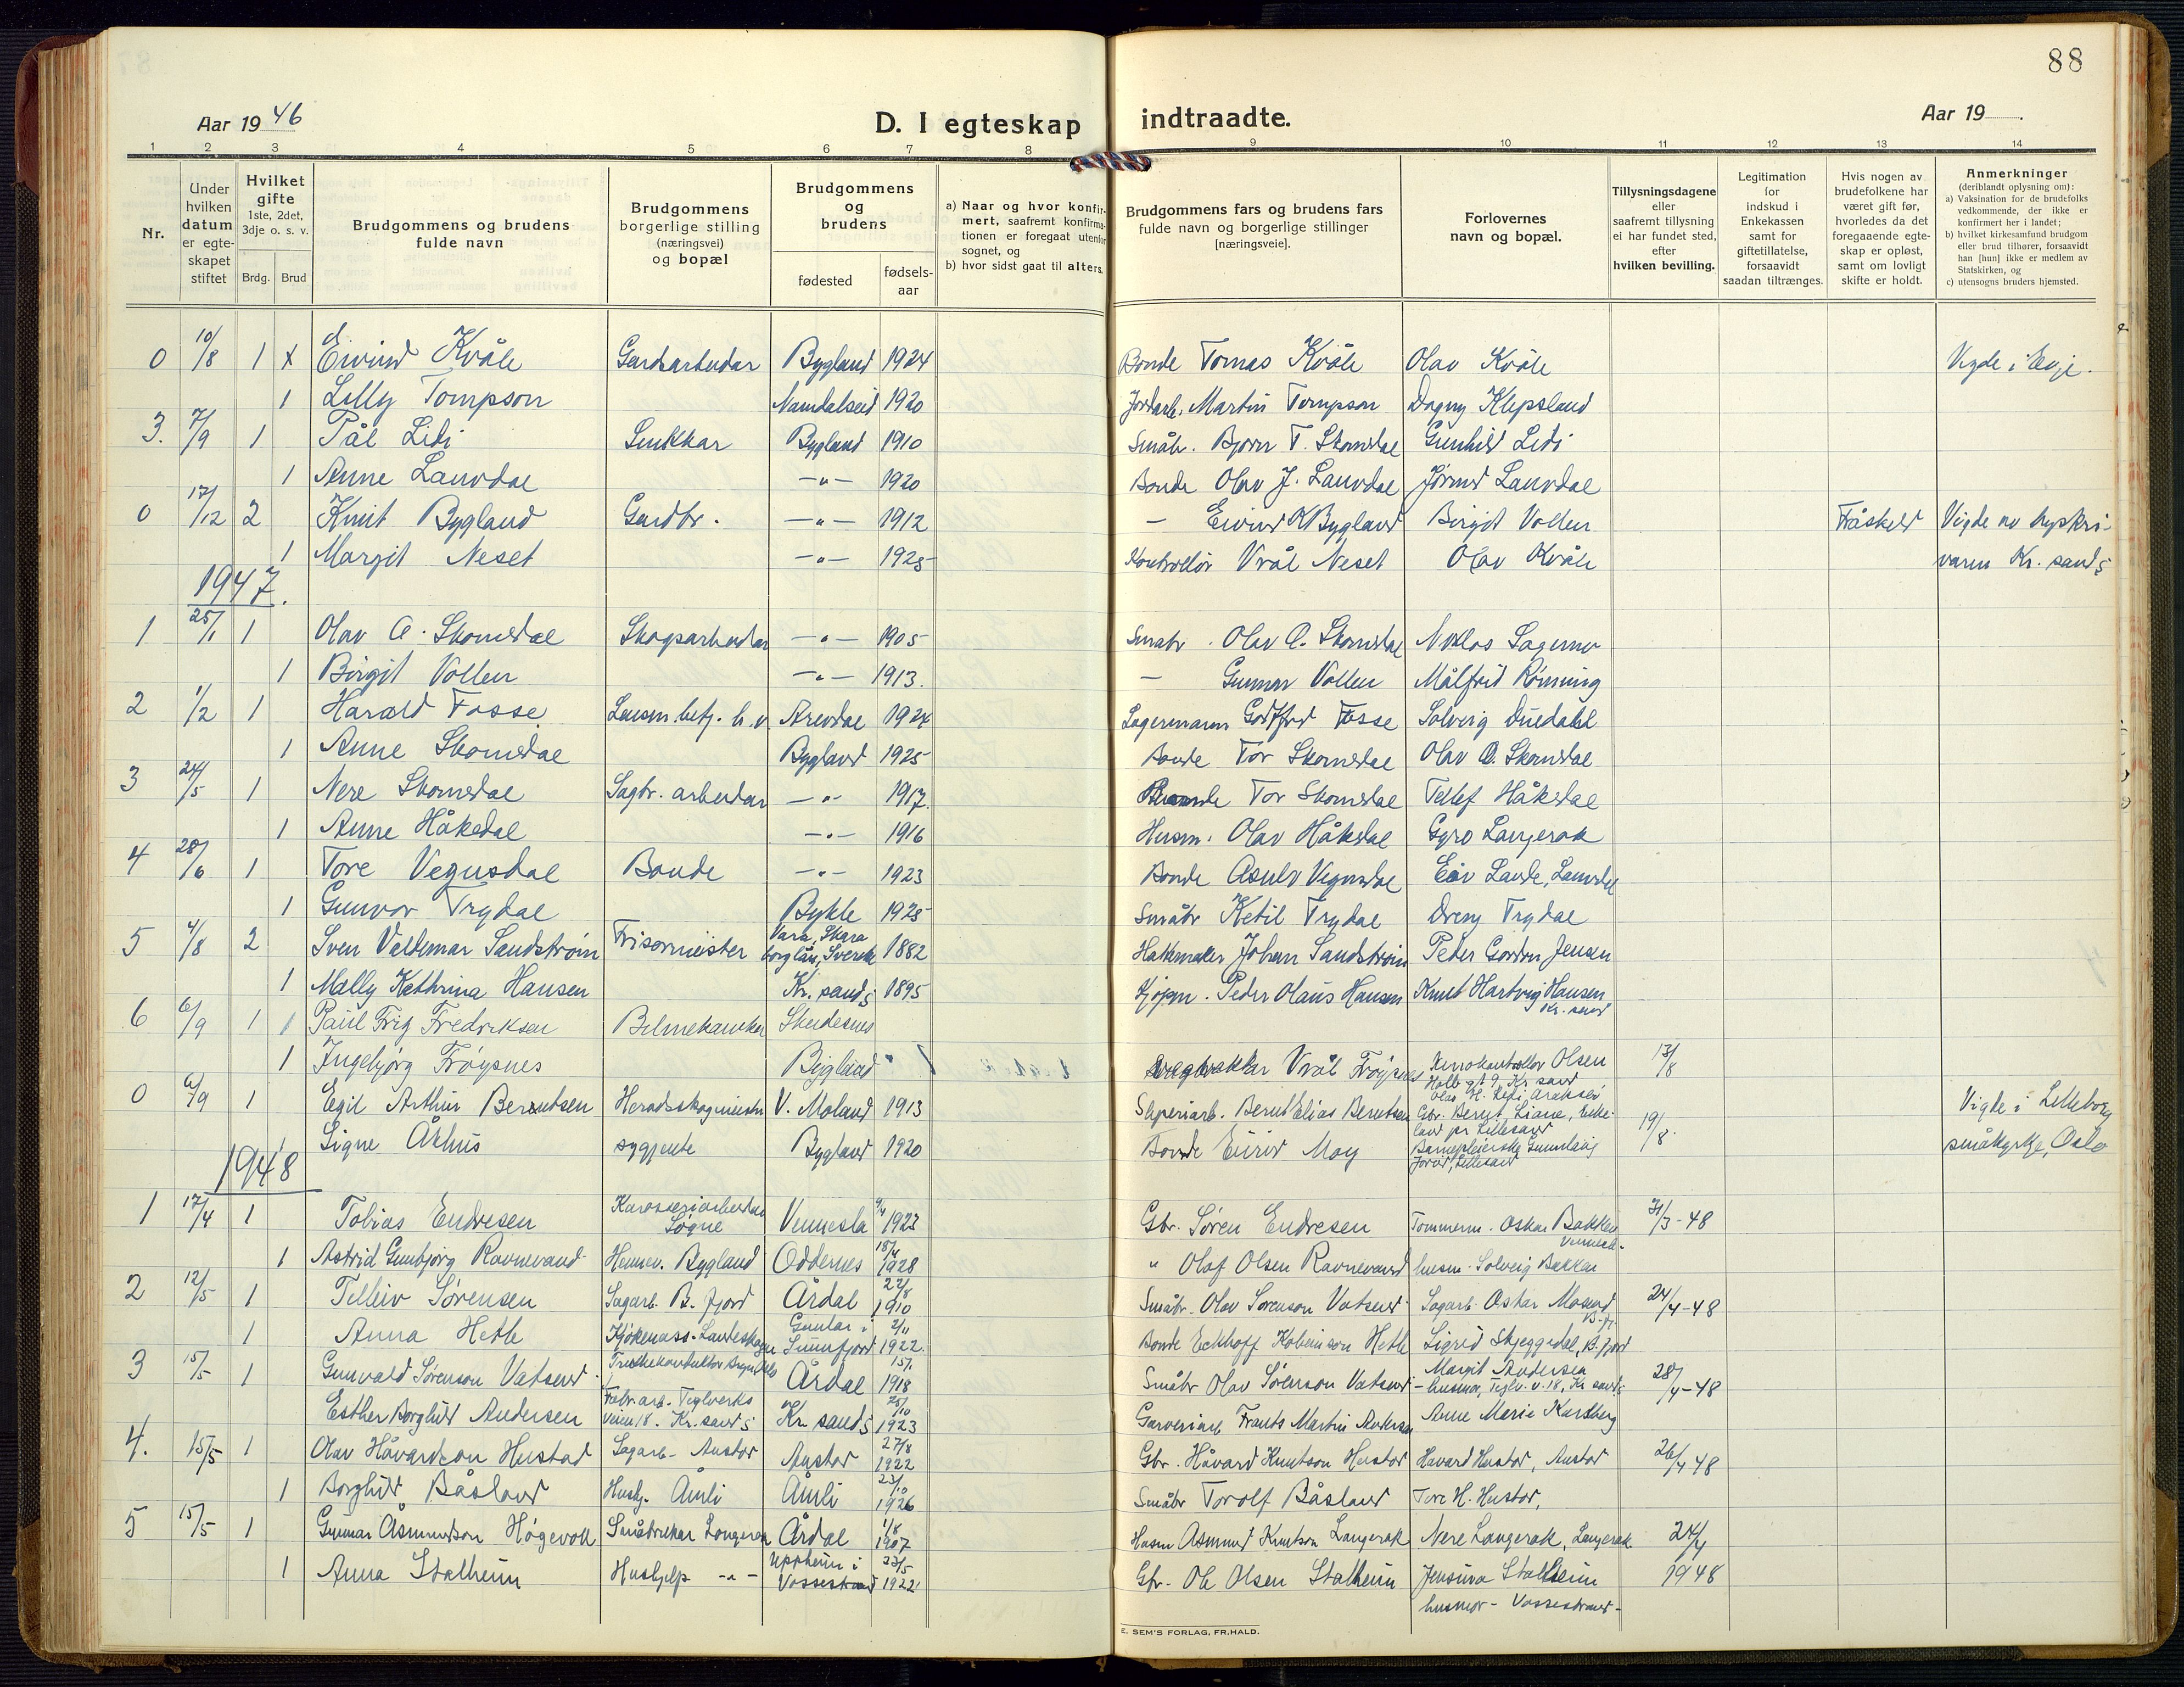 88
Aar 19 46
D. I egteskap indtraadte.
Aar 19
1 2 3 4 5 6 7 8 9 10 11 12 13 14
Nr.
Under hvilken datum er egte-skapet stiftet
Hvilket gifte 1ste, 2det, 3dje o. s. v.
Brdg. Brud
Brudgommens og brudens fulde navn
Brudgommens borgerlige stilling (næringsvei) og bopæl
Brudgommens og brudens
fødested
fødsels-aar
a) Naar og hvor konfir-mert, saafremt konfirma-tionen er foregaat utenfor sognet, og
b) hvor sidst gaat til alters.
Brudgommens fars og brudens fars fulde navn og borgerlige stillinger [næringsveie].
Forlovernes navn og bopæl.
Tillysningsdagene eller saafremt tillysning ei har fundet sted, efter hvilken bevilling.
Legitimation for indskud i Enkekassen samt for giftetillatelse, forsaavidt saadan tiltrænges.
Hvis nogen av brudefolkene har været gift før, hvorledes da det foregaaende egte-skap er opløst, samt om lovligt skifte er holdt.
Anmerkninger (deriblandt oplysning om):
a) Vaksination for de brudefolks vedkommende, der ikke er konfirmert her i landet;
b) hvilket kirkesamfund brudgom eller brud tilhører, forsaavidt han [hun] ikke er medlem av Statskirken, og
c) utensogns bruders hjemsted.
0 10/8 1 x Eivind Kvåle Gardsarbeidar Bygland 1924 Bonde Tomas Kvåle Olav Kvåle Vigde i Evje.
1 Lilly Tompson Namdalseid 1920 Jordarb. Martin Tompson Dagny Klepsland
3. 7/9 1 Pål Lidi Snikkar Bygland 1910 Småbr. Bjørn T. Skomedal Gunhild Lidi
1 Anne Lauvdal —"— 1920 Bonde Olav J. Lauvdal Jørund Lauvdal
0 17/12 2 Knut Bygland Gardbr. —"— 1912 — Eivind K Bygland Birgit Vollen Fråskild Vigde av byskri-
1 Margit Neset —"— 1925 Kontrollør Vrål Neset Olav Kvåle varen Kr. sand S
1947.
1 25/1 1 Olav O. Skomedal Skogsarbeidar —"— 1905 Småbr. Olav O. Skomedal Niklos Sagemo
1 Birgit Vollen —"— 1913. — Gunnar Vollen Målfrid Rønning
2 1/2 1 Harald Fosse Lensm.betj. h.v. Arendal 1924 Lagermann Godtfred Fosse Solveig Duedahl
1 Anne Skomedal Bygland 1925 Bonde Tor Skomedal Olav O. Skomedal
3 24/5 1 Nere Skomedal Sagbr. arbeidar —"— 1917. Bonde Tor Skomedal Tellef Håkedal
1 Anne Håkedal —"— 1916 Husm. Olav Håkedal Gyro Langerak
4 28/6 1 Tore Vegusdal Bonde —"— 1923 Bonde Asulv Vegusdal Eiv Lande, Lauvdal
1 Gunvor Trydal Bykle 1925 Småbr Ketil Trydal Dreng Trydal
5 4/8 2 Sven Valdemar Sandstrøm Frisørmeister Vara, Skara borglän, Sverike 1882 Hattemaker Johan Sandstrøm Peder Gordon Jensen
1 Mally Kathrina Hansen Kr. sand S 1895 Kjøpm. Peder Olaus Hansen Knut Hartvig Hansen, Kr. sand
6 6/9 1 Paul Frig Fredriksen Bilmekaniker Skudesnes
1 Ingebjørg Frøysnes Bygland Vegvaktar Vrål Frøysnes Kinokontrollør Olsen 13/8
0 6/9 1 Egil Arthur Berentsen Heradsskogmeister V. Moland 1913 Slyperiarb. Bernt Elias Berntsen Vigde i Lilleborg
Signe Åkhus sygjente Bygland 1920 Bonde Eivind Moy 19/8. småkyrkje, Oslo
1948
1 17/4 1 Tobias Endresen Karosseriarbeidar Søgne Vennesla 1923 Gbr. Søren Endresen Tømmerm. Oskar Bakken Vennesla 31/3-48
1 Astrid Gunbjørg Ravnevand Heimev. Bygland Oddernes 1928 " Olaf Olsen Ravnevand husm. Solveig Bakken
2 12/5 1 Tellev Sørensen Sagarb. B. fjord Årdal 22/8 1910 Småbr. Olav Sørenson Vatsend Sagarb. Oskar Moseid B. fj. 24/4-48
1 Anna Hetle Kjøkenass. Landeskogen Gaular i Sunnfjord 2/11 1922. Bonde Eckhoff Hetle Sigrid Skjeggedal, B. fjord
3 15/5 1 Gunvald Sørenson Vatsend Årdal 15/1 1918 Småbr Olav Sørenson Vatsend Margit Andersen husmor, Teglv. v. 18, Kr sand S 28/4-48
Esther Borghild Andersen Fabr.arb. Teglverks veien 18. Kr. sand S Kr. sand S 1923 Garveriarb. Frants Martin Andersen Anne Marie Karlberg
4. 15/5 1 Olav Håvardson Hustad Sagarb. Austad Austad 27/8 1922 Gbr. Håvard Knutson Hustad Håvard Hustad, Austad 26/4 48
1 Borghild Båsland Hushj. Åmli Åmli 23/10 1926 Småbr Torolf Båsland Tore H. Hustad,
5 15/5 1 Gunnar Åsmundson Høgevoll Småbrukar Langerak Årdal 1/8 1907 Husm Åsmund Knutson Langerak Nere Langerak, Langerak 24/4
1 Anna Stalheim Hushjelp —"— Uppheim i Vossestrand 23/5 1922 Gbr. Ole Olsen Stalheim Jensina Stalheim 1948
husmor - Vossestrand -
E. SEM'S FORLAG, FR.HALD.